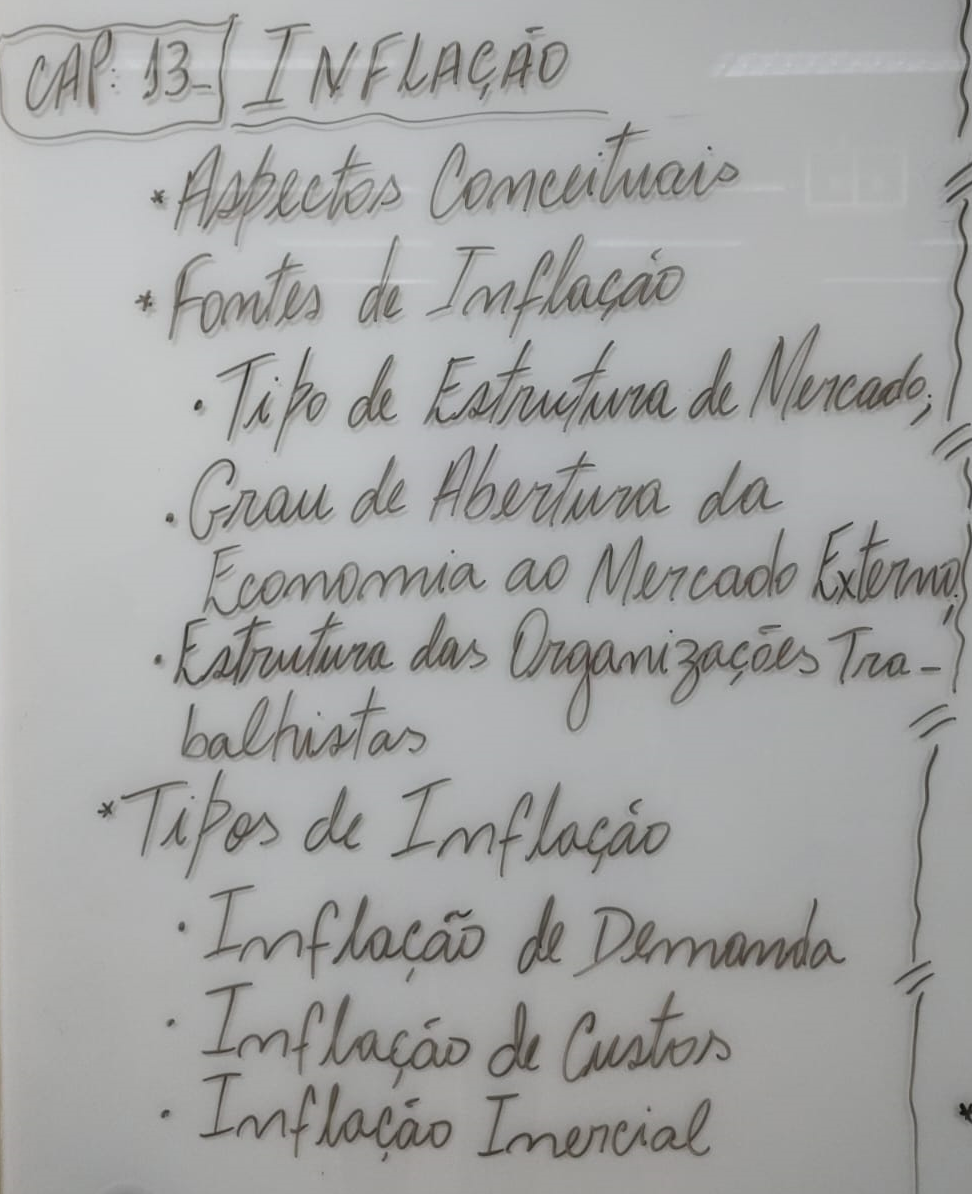 CAP: 13- INFLAÇÃO
* Aspectos Conceituais
* Fontes de Inflação
· Tipo de Estrutura de Mercado;
· Grau de Abertura da
Economia ao Mercado Externo;
· Estrutura das Organizações Tra-
balhistas
* Tipos de Inflação
· Inflação de Demanda
· Inflação de Custos
· Inflação Inercial
*